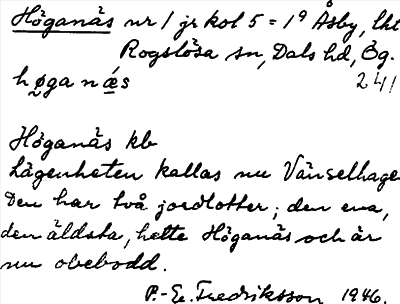 Höganäs nr 1 jr kol 5 = 1⁹ Åsby, lht
Rogslösa sn, Dals hd, Ög.
höga näs 241
Höganäs kb
Lägenheten kallas nu Vänselhage
Den har två jordlotter; den ena,
den äldsta, hette Höganäs och är
nu obebodd.
P.-E. Fredriksson 1946.